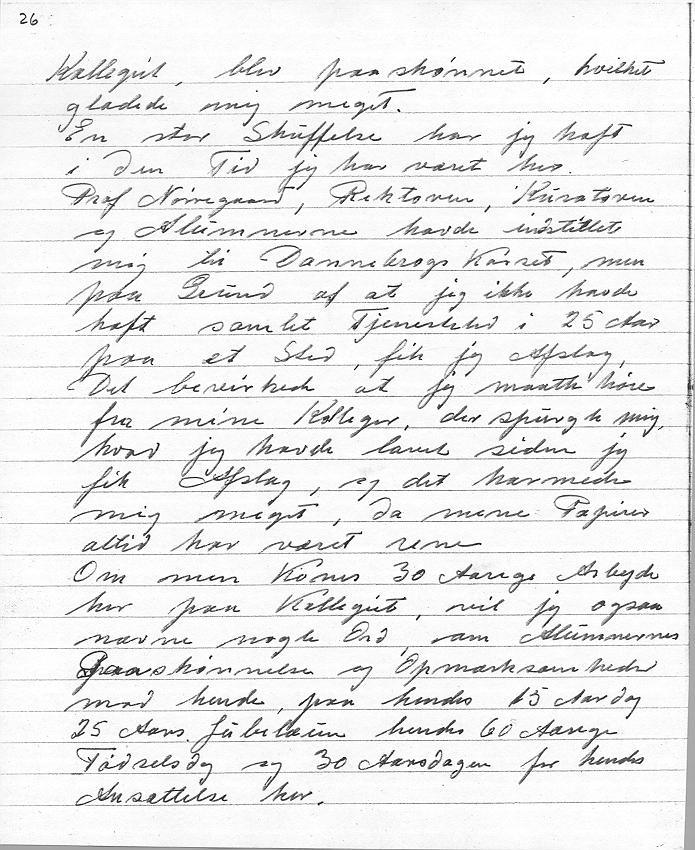 26
Kollegiet, blev paaskønnet, hvilket
glædede mig meget.
En stor Skuffelse har jeg haft
i den Tid jeg har været her.
Prof Nørregaard, Rektoren, Kuratoren
og Alumnerne havde indstillet
mig til Dannebrogs Korset, men
paa Grund af at jeg ikke havde
haft samlet Tjenestetid i 25 Aar
paa et Sted, fik jeg Afslag,
Det bevirkede at jeg maatte høre
fra mine Kolleger, der spurgte mig,
hvad jeg havde lavet siden jeg
fik Afslag, og det harmede
mig meget, da mine Papirer
altid har været rene
Om min Kones 30 Aarige Arbejde
her paa Kollegiet, vil jeg ogsaa
nævne nogle Ord, som Alumnernes
Paaskønnelse og Opmærksomheder
mod hende, paa hendes 15 Aardag
25 Aars. Jubelæum hendes 60 Aarige
Fødselsdag og 30 Aarsdagen for hendes
Ansættelse her.